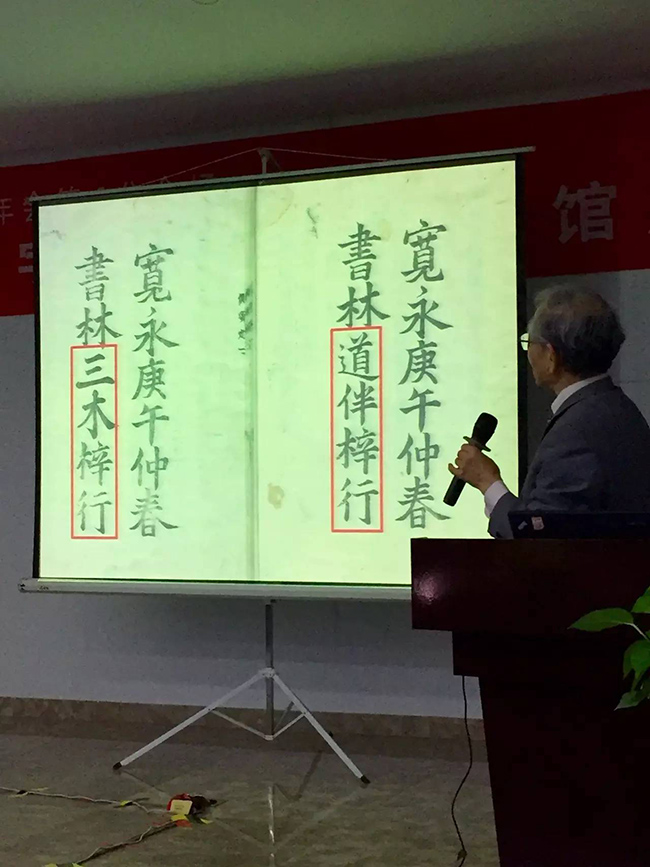 馆
寛永庚午仲春
書林道伴梓行
寛永庚午仲春
書林三木梓行